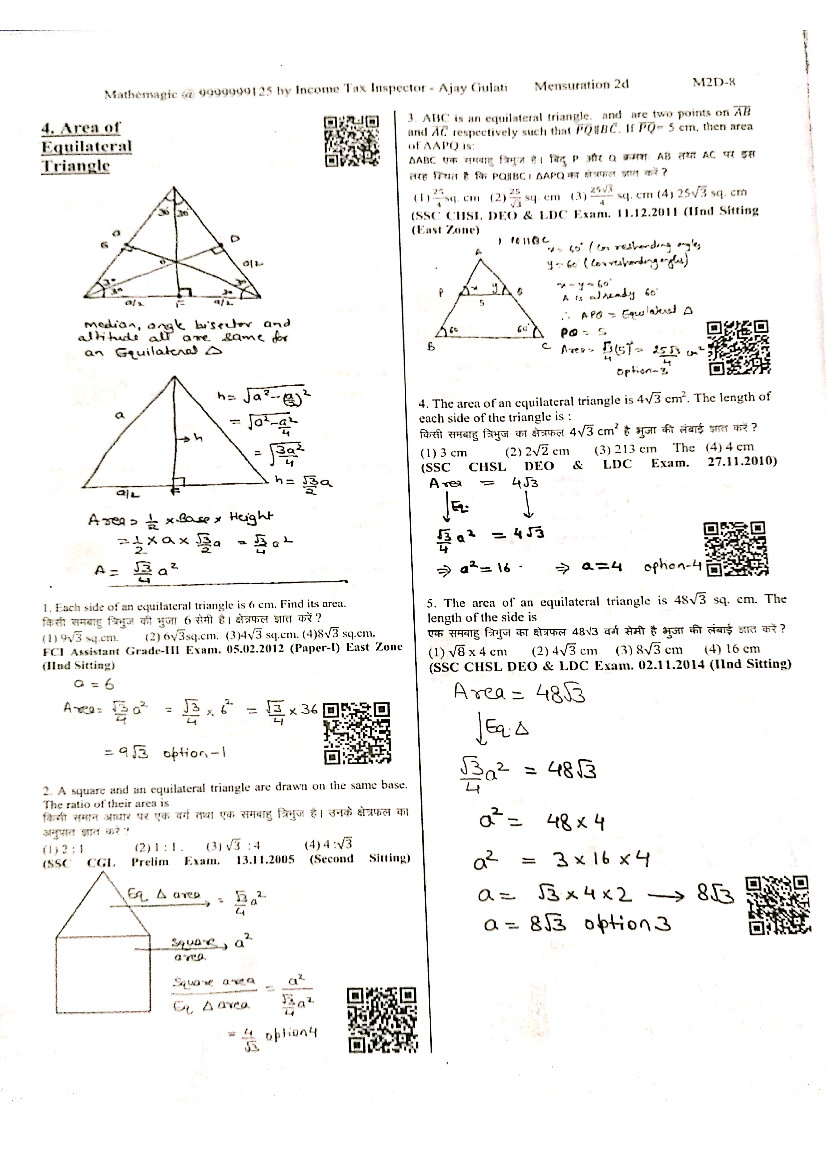 Mathemagic @ 9999999125 by Income Tax Inspector - Ajay Gulati Mensuration 2d M2D-8
4. Area of
Equilateral
Triangle
30° 30°
a
G
D
O
a/2
30° 30°
30° 30°
a/2 F a/2
Median, angle bisector and
altitude all are same for
an Equilateral Δ
a
h
a/2 F
h = √(a² - (a/2)²)
= √(a² - a²/4)
= √(3a²/4)
h = √3/2 a
Area = 1/2 × Base × Height
= 1/2 × a × √3/2 a = √3/4 a²
A = √3/4 a²
1. Each side of an equilateral triangle is 6 cm. Find its area.
किसी समबाहु त्रिभुज की भुजा 6 सेमी है। क्षेत्रफल ज्ञात करें ?
(1) 9√3 sq.cm. (2) 6√3sq.cm. (3)4√3 sq.cm. (4)8√3 sq.cm.
FCI Assistant Grade-III Exam. 05.02.2012 (Paper-I) East Zone
(IInd Sitting)
a = 6
Area = √3/4 a² = √3/4 × 6² = √3/4 × 36
= 9√3 option-1
2. A square and an equilateral triangle are drawn on the same base.
The ratio of their area is
किसी समान आधार पर एक वर्ग तथा एक समबाहु त्रिभुज है। उनके क्षेत्रफल का
अनुपात ज्ञात करें ?
(1) 2 : 1 (2) 1 : 1. (3) √3 : 4 (4) 4 :√3
(SSC CGL Prelim Exam. 13.11.2005 (Second Sitting)
Eq Δ area = √3/4 a²
Square area, a²
Square area / Eq Δ area = a² / (√3/4 a²)
= 4/√3 option4
3. ABC is an equilateral triangle. and are two points on AB
and AC respectively such that PQ||BC. If PQ= 5 cm, then area
of ΔAPQ is:
ΔABC एक समबाहु त्रिभुज है। बिंदु P और Q क्रमश AB तथा AC पर इस
तरह स्थित है कि PQ||BC। ΔAPQ का क्षेत्रफल ज्ञात करें ?
(1) 25/4 sq. cm (2) 25/√3 sq. cm (3) 25√3/4 sq. cm (4) 25√3 sq. cm
(SSC CHSL DEO & LDC Exam. 11.12.2011 (IInd Sitting
(East Zone)
PQ||BC
x = 60° (Corresponding angles
y = 60 (Corresponding angles)
x = y = 60°
A is already 60°
∴ APQ = Equilateral Δ
PQ = 5
Area = √3/4 (5)² = 25√3/4 cm²
option-3
A
P x y Q
5
60 60°
B C
4. The area of an equilateral triangle is 4√3 cm². The length of
each side of the triangle is :
किसी समबाहु त्रिभुज का क्षेत्रफल 4√3 cm² है भुजा की लंबाई ज्ञात करें ?
(1) 3 cm (2) 2√2 cm (3) 213 cm The (4) 4 cm
(SSC CHSL DEO & LDC Exam. 27.11.2010)
Area = 4√3
Eq.
√3/4 a² = 4√3
⇒ a² = 16 ⇒ a = 4 option-4
5. The area of an equilateral triangle is 48√3 sq. cm. The
length of the side is
एक समबाहु त्रिभुज का क्षेत्रफल 48√3 वर्ग सेमी है भुजा की लंबाई ज्ञात करें ?
(1) √8 x 4 cm (2) 4√3 cm (3) 8√3 cm (4) 16 cm
(SSC CHSL DEO & LDC Exam. 02.11.2014 (IInd Sitting)
Area = 48√3
Eq. Δ
√3/4 a² = 48√3
a² = 48 × 4
a² = 3 × 16 × 4
a = √3 × 4 × 2 → 8√3
a = 8√3 option 3